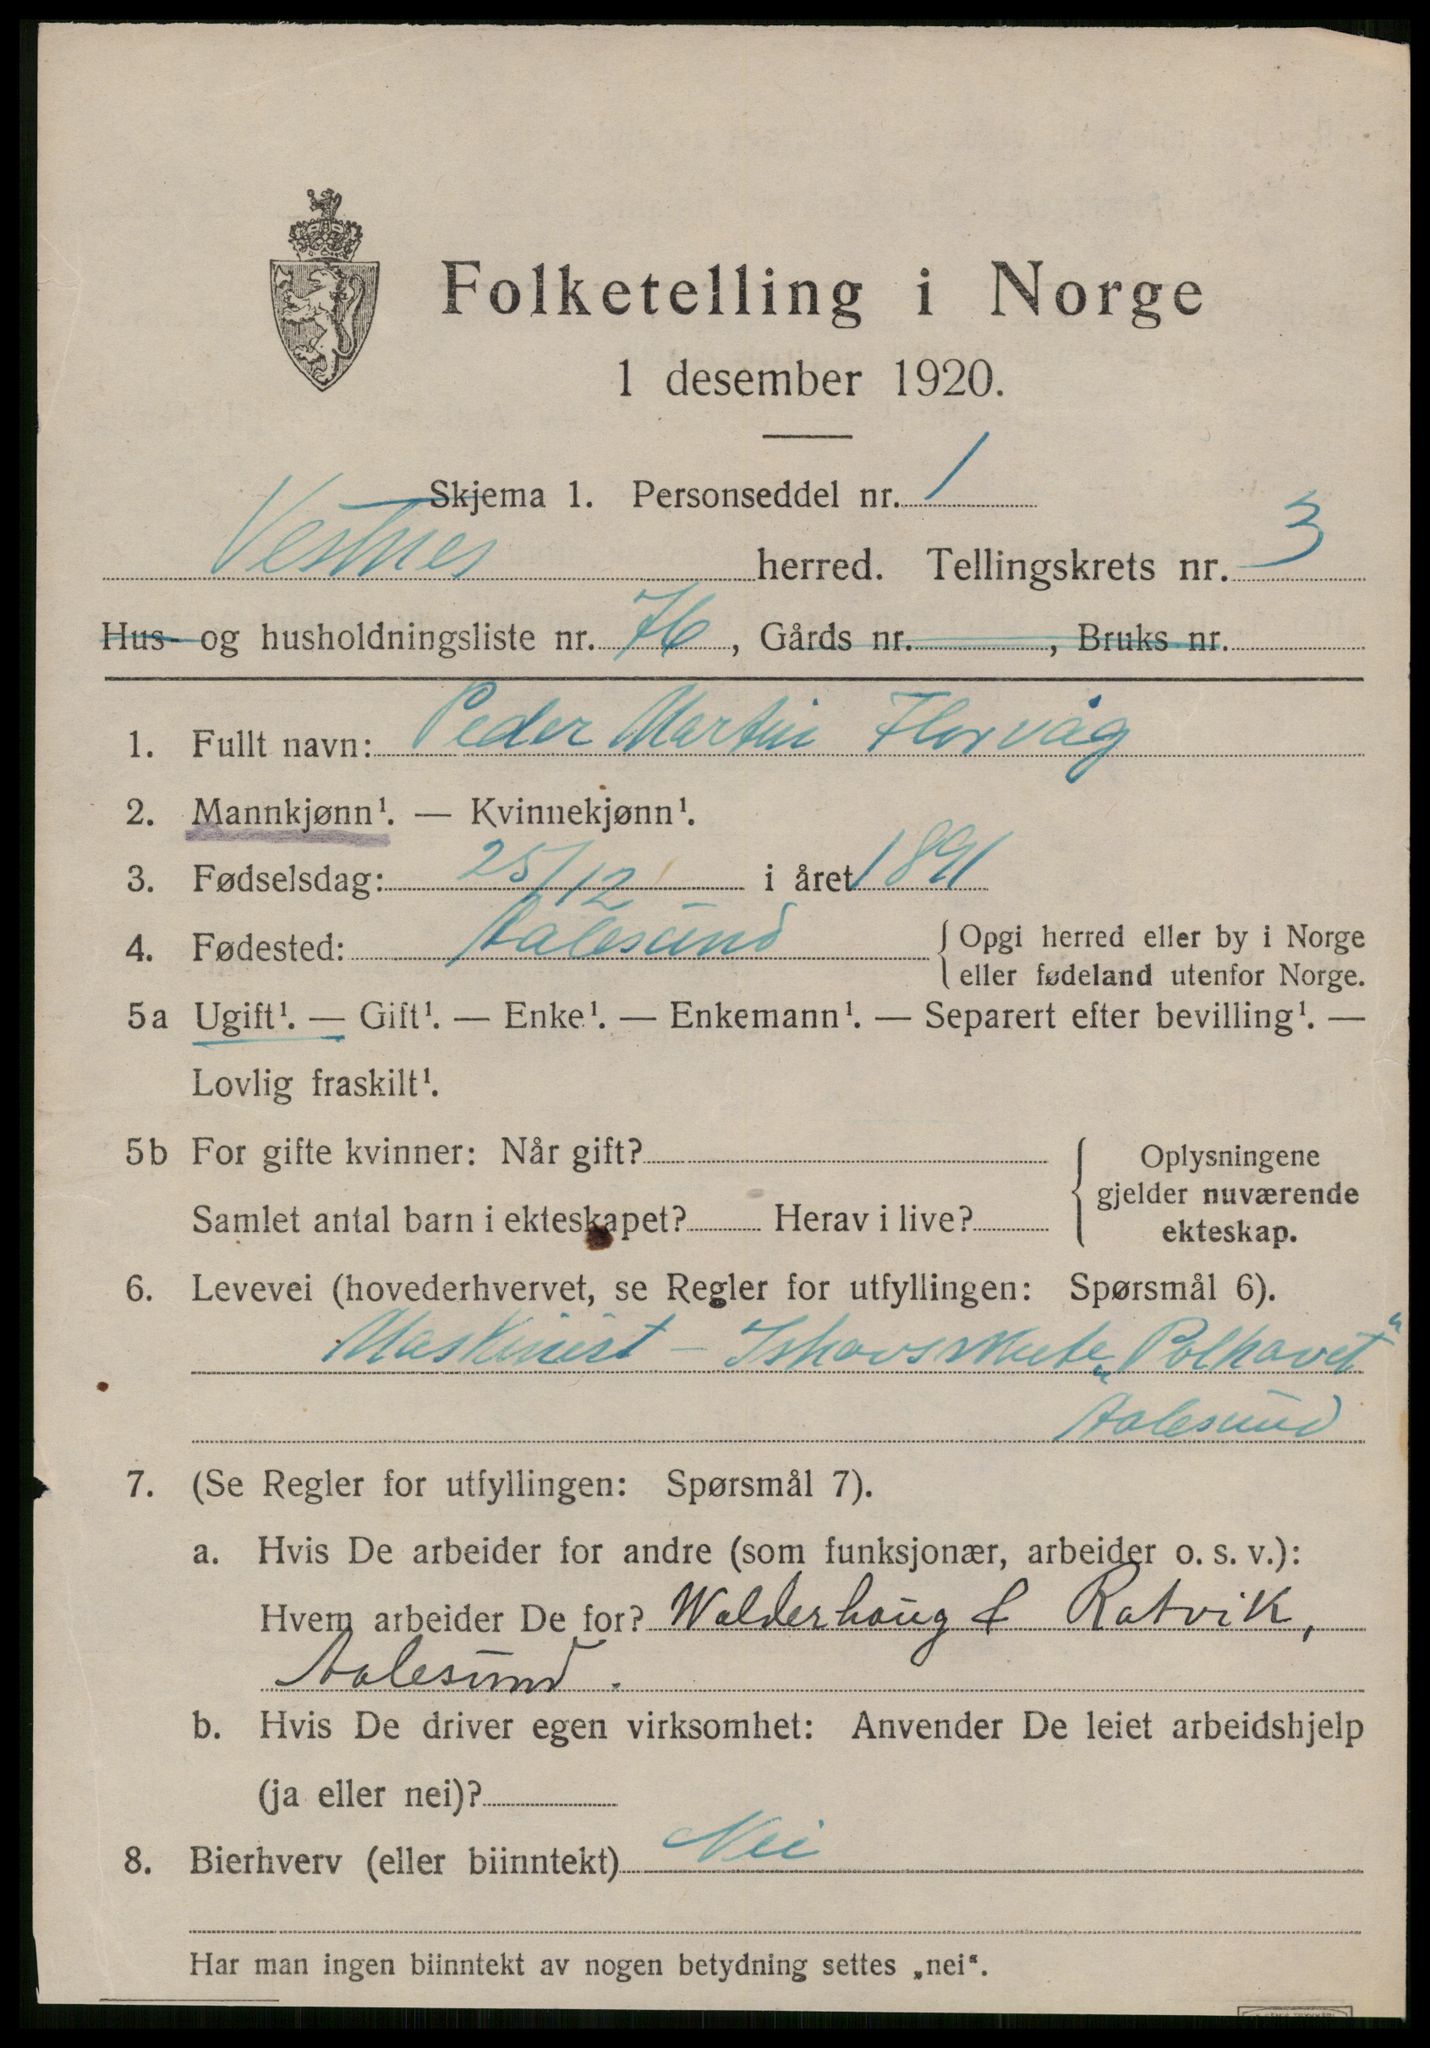 Folketelling i Norge
1 desember 1920.
Skjema 1. Personseddel nr. 1
Vestnes herred. Tellingskrets nr. 3
Hus- og husholdningsliste nr. 76, Gårds nr. , Bruks nr.
1. Fullt navn: Peder Martin Florvåg
2. Mannkjønn¹. — Kvinnekjønn¹.
3. Fødselsdag: 25/12 i året 1891
4. Fødested: Aalesund { Opgi herred eller by i Norge
eller fødeland utenfor Norge.
5a Ugift¹. — Gift¹. — Enke¹. — Enkemann¹. — Separert efter bevilling¹. —
Lovlig fraskilt¹.
5b For gifte kvinner: Når gift?
Samlet antal barn i ekteskapet? Herav i live?
{ Oplysningene
gjelder nuværende
ekteskap.
6. Levevei (hovederhvervet, se Regler for utfyllingen: Spørsmål 6).
Maskinist - Ishavsskute „Polhavet"
Aalesund
7. (Se Regler for utfyllingen: Spørsmål 7).
a. Hvis De arbeider for andre (som funksjonær, arbeider o. s. v.):
Hvem arbeider De for? Walderhaug & Ratvik,
Aalesund.
b. Hvis De driver egen virksomhet: Anvender De leiet arbeidshjelp
(ja eller nei)?
8. Bierhverv (eller biinntekt) Nei
Har man ingen biinntekt av nogen betydning settes „nei".